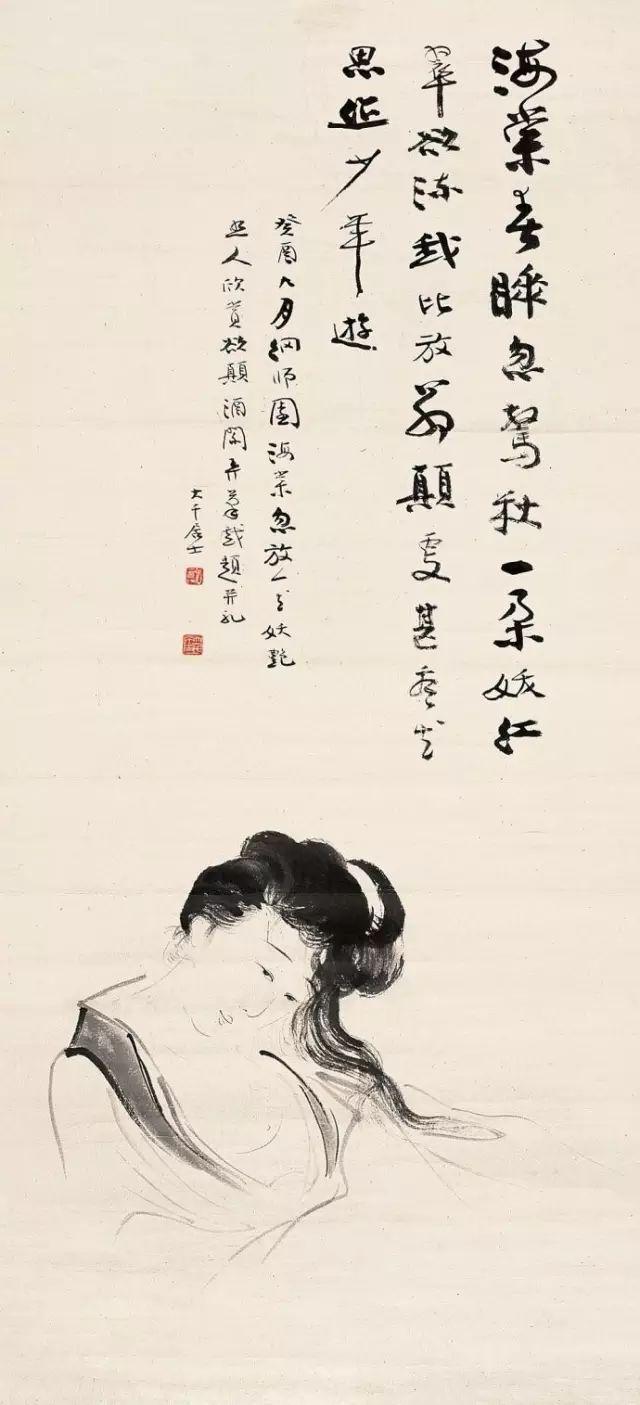 海棠春睡忽驚秋一朵妖紅
翠欲流我比放翁顛更甚看花
思作少年遊
癸酉九月網師園海棠忽放一花妖艷
照人欣賞欲顛酒闌弄筆戲題并記
大千居士